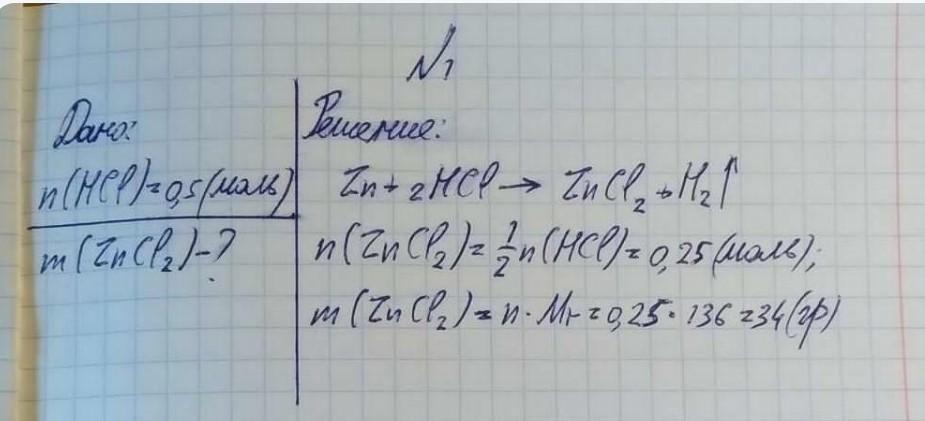 №1
Дано:
n(HCl)=0,5(моль)
m(ZnCl₂)-?
Решение:
Zn+2HCl→ ZnCl₂+H₂↑
n(ZnCl₂)=½n(HCl)=0,25(моль);
m(ZnCl₂)=n·Mr=0,25·136=34(гр)